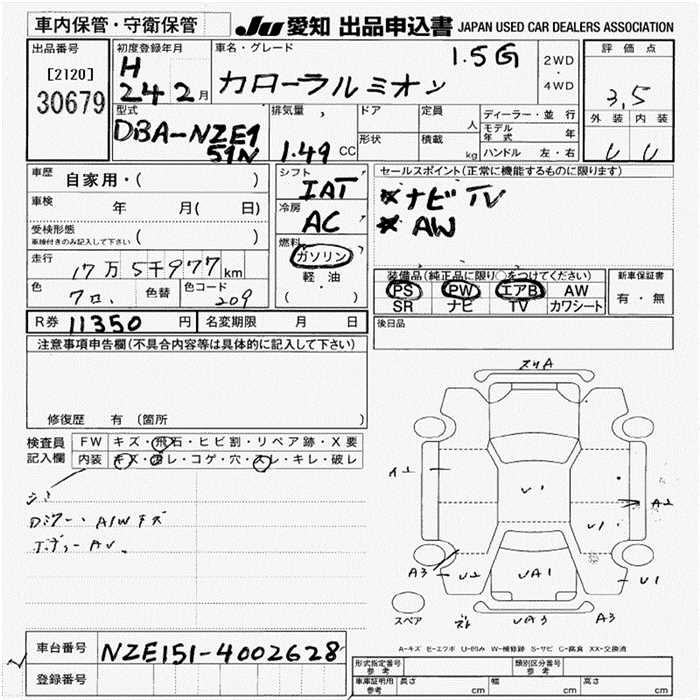 車内保管・守衛保管
JU 愛知 出品申込書 JAPAN USED CAR DEALERS ASSOCIATION
出品番号
[2120]
30679
初度登録年月
H
24 2月
車名・グレード
1.5G
カローラルミオン
2WD
・
4WD
評価点
3,5
外装 内装
型式
DBA-NZE1
51N
排気量
1.49 CC
ドア
定員
人
形状
積載
kg
ディーラー・並行
モデル
年式 年
ハンドル 左・右
車歴 自家用・( )
車検 年 月( 日)
受検形態
車検付きのみ記入して下さい ( )
走行 17万5千977km
色 クロ、 色替 色コード 209
シフト
IAT
冷房
AC
燃料
ガソリン
軽・油
( )
セールスポイント(正常に機能するものに限ります)
※ナビ TV
※ AW
装備品(純正品に限り○をつけてください)
PS PW エアB AW
SR ナビ TV カワシート
新車保証書
有・無
R券 11350円 名変期限 月 日
後日品
注意事項申告欄(不具合内容等は具体的に記入して下さい)
修復歴 有 (箇所 )
検査員
記入欄
FW キズ・飛石・ヒビ割・リペア跡・X要
内装 キズ・汚レ・コゲ・穴・スレ・キレ・破レ
A/Wキズ
ボディーAU、
スリA
A1
U1
A2
U1
A3
U2
UA1
U1
スペア
UA3
A3
A-キズ E-エクボ U-凹み W-補修跡 S-サビ C-腐食 XX-交換済
車台番号 NZE151-4002628
登録番号
形式指定番号
参考
類別区分番号
参考
車庫証明用
参考
長さ cm 幅 cm 高さ cm